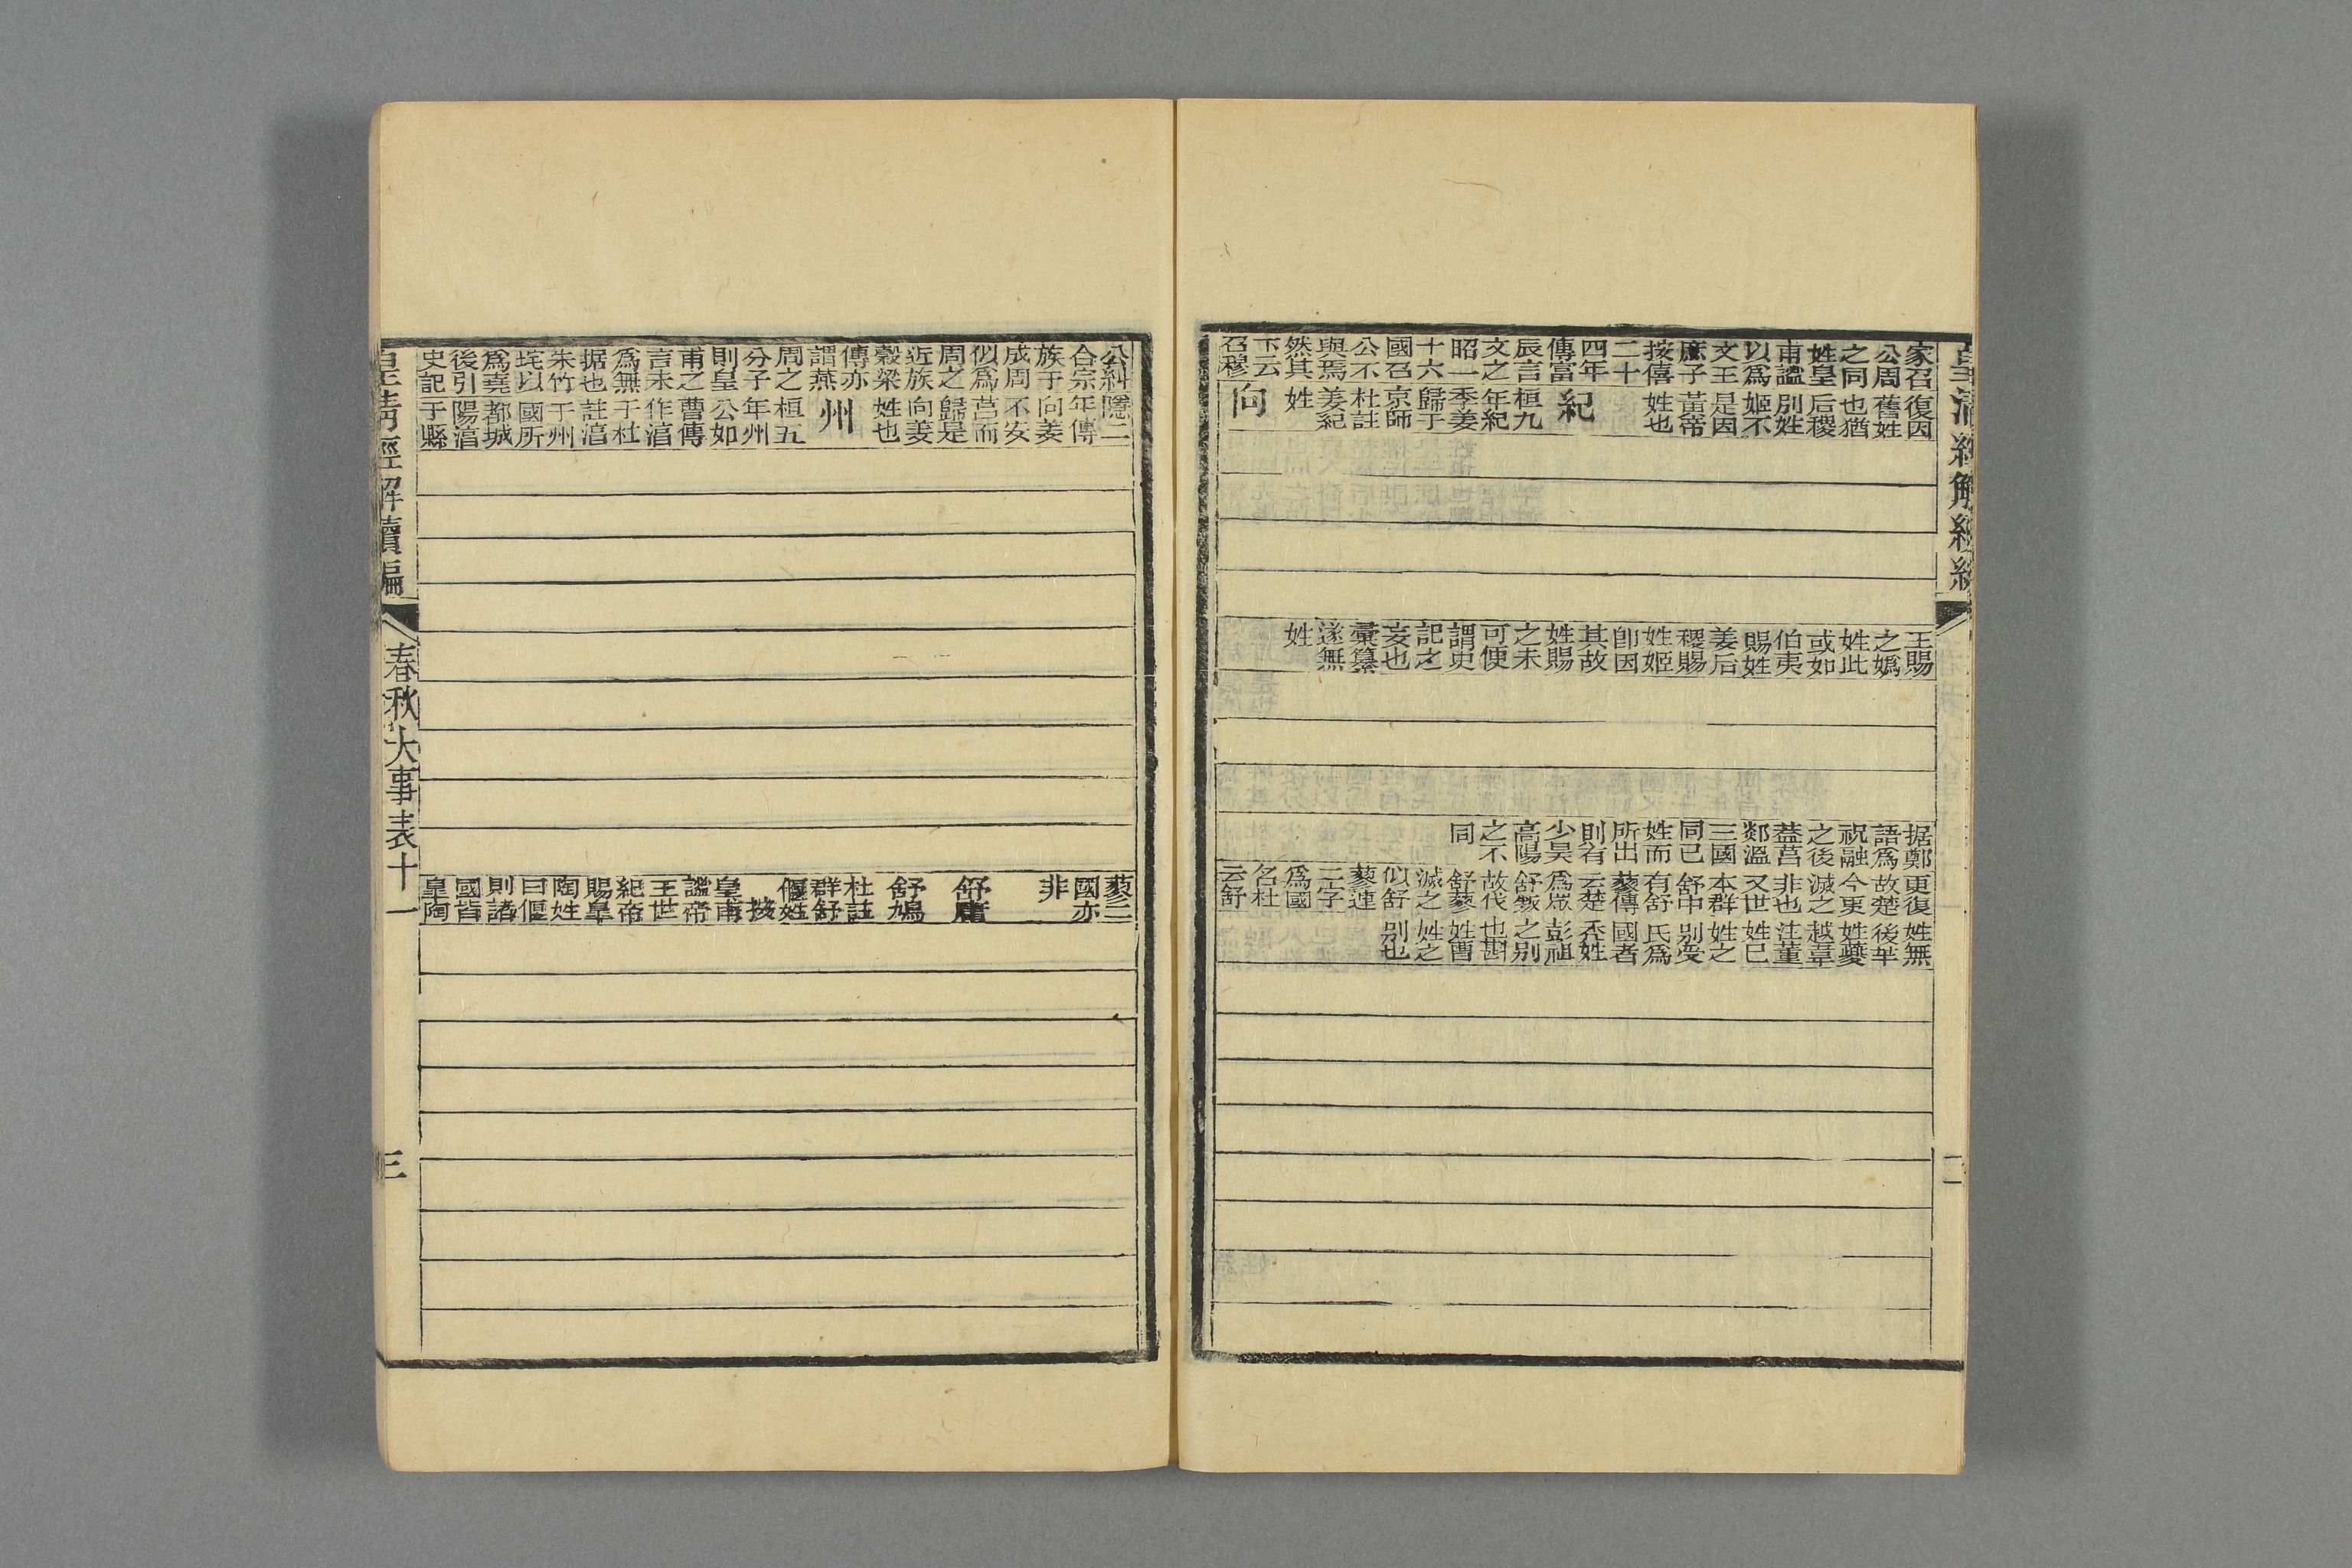 皇清經解續編
二
家召
公周
之同
姓皇
甫謚
以為
文王
庶子
按僖
二十
四年
傳富
辰言
文之
昭一
十六
國召
公不
與焉
然其
下云
召穆
復因
舊姓
也猶
后稷
別姓
姬不
是因
黃帝
姓也
紀
桓九
年紀
季姜
歸于
京師
杜註
姜紀
姓
向
王賜
之媯
姓此
或如
伯夷
賜姓
姜后
稷賜
姓姬
卽因
其故
姓賜
之未
可便
謂史
記之
妄也
彙纂
遂無
姓
据鄭
語為
祝融
之後
葢莒
郯溫
三國
同己
姓而
所出
則有
少昊
高陽
之不
同
更復
故楚
今更
滅之
非也
又世
本群
舒中
有舒
蓼傳
云楚
為眾
舒叛
故伐
舒蓼
滅之
似舒
蓼連
二字
為國
名杜
云舒
姓無
後羋
姓夔
越韋
注董
姓己
姓之
別受
氏為
國者
禿姓
彭祖
之別
也斟
姓曹
姓之
別也
公糾
合宗
族于
成周
似為
周之
近族
穀梁
傳亦
謂燕
周之
分子
則皇
甫之
言未
為無
据也
朱竹
垞以
為堯
後引
史記
隱二
年傳
向姜
不安
莒而
歸是
向姜
姓也
州
桓五
年州
公如
曹傳
作湻
于杜
註湻
于州
國所
都城
陽湻
于縣
蓼二
國亦
非
舒庸
舒鳩
杜註
群舒
偃姓
按
皇甫
謚帝
王世
紀帝
賜皐
陶姓
曰偃
則諸
國皆
皇陶
皇清經解續編
春秋大事表十一
三